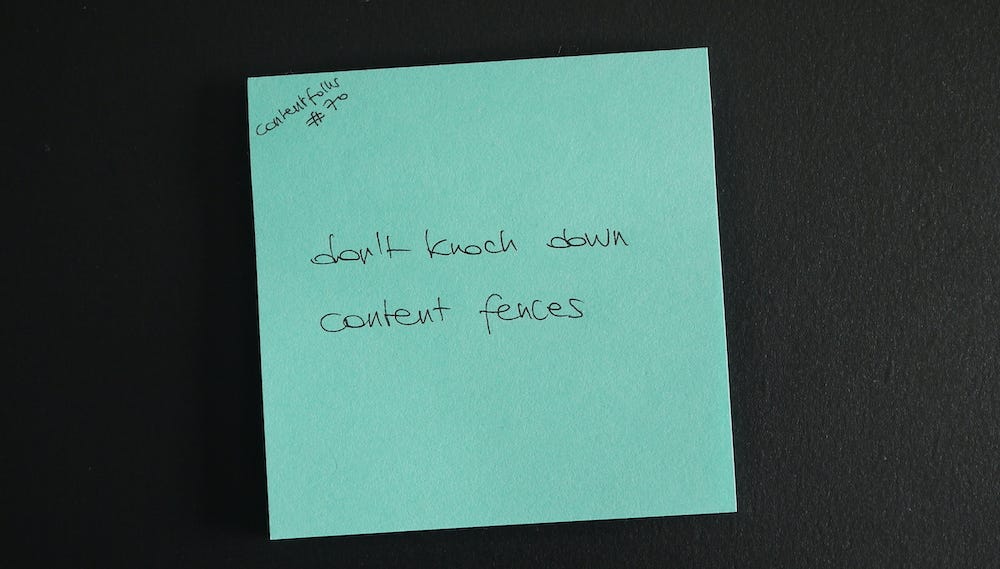 contentfolks
# 70
don't knock down
content fences